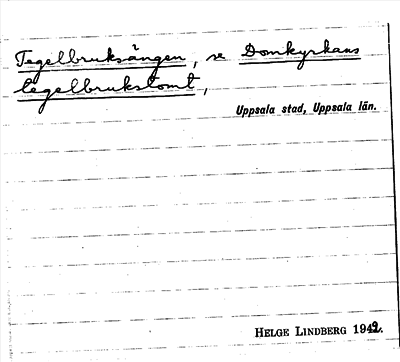 Tegelbruksängen, se Domkyrkans
tegelbrukstomt,
Uppsala stad, Uppsala län.
HELGE LINDBERG 1942.